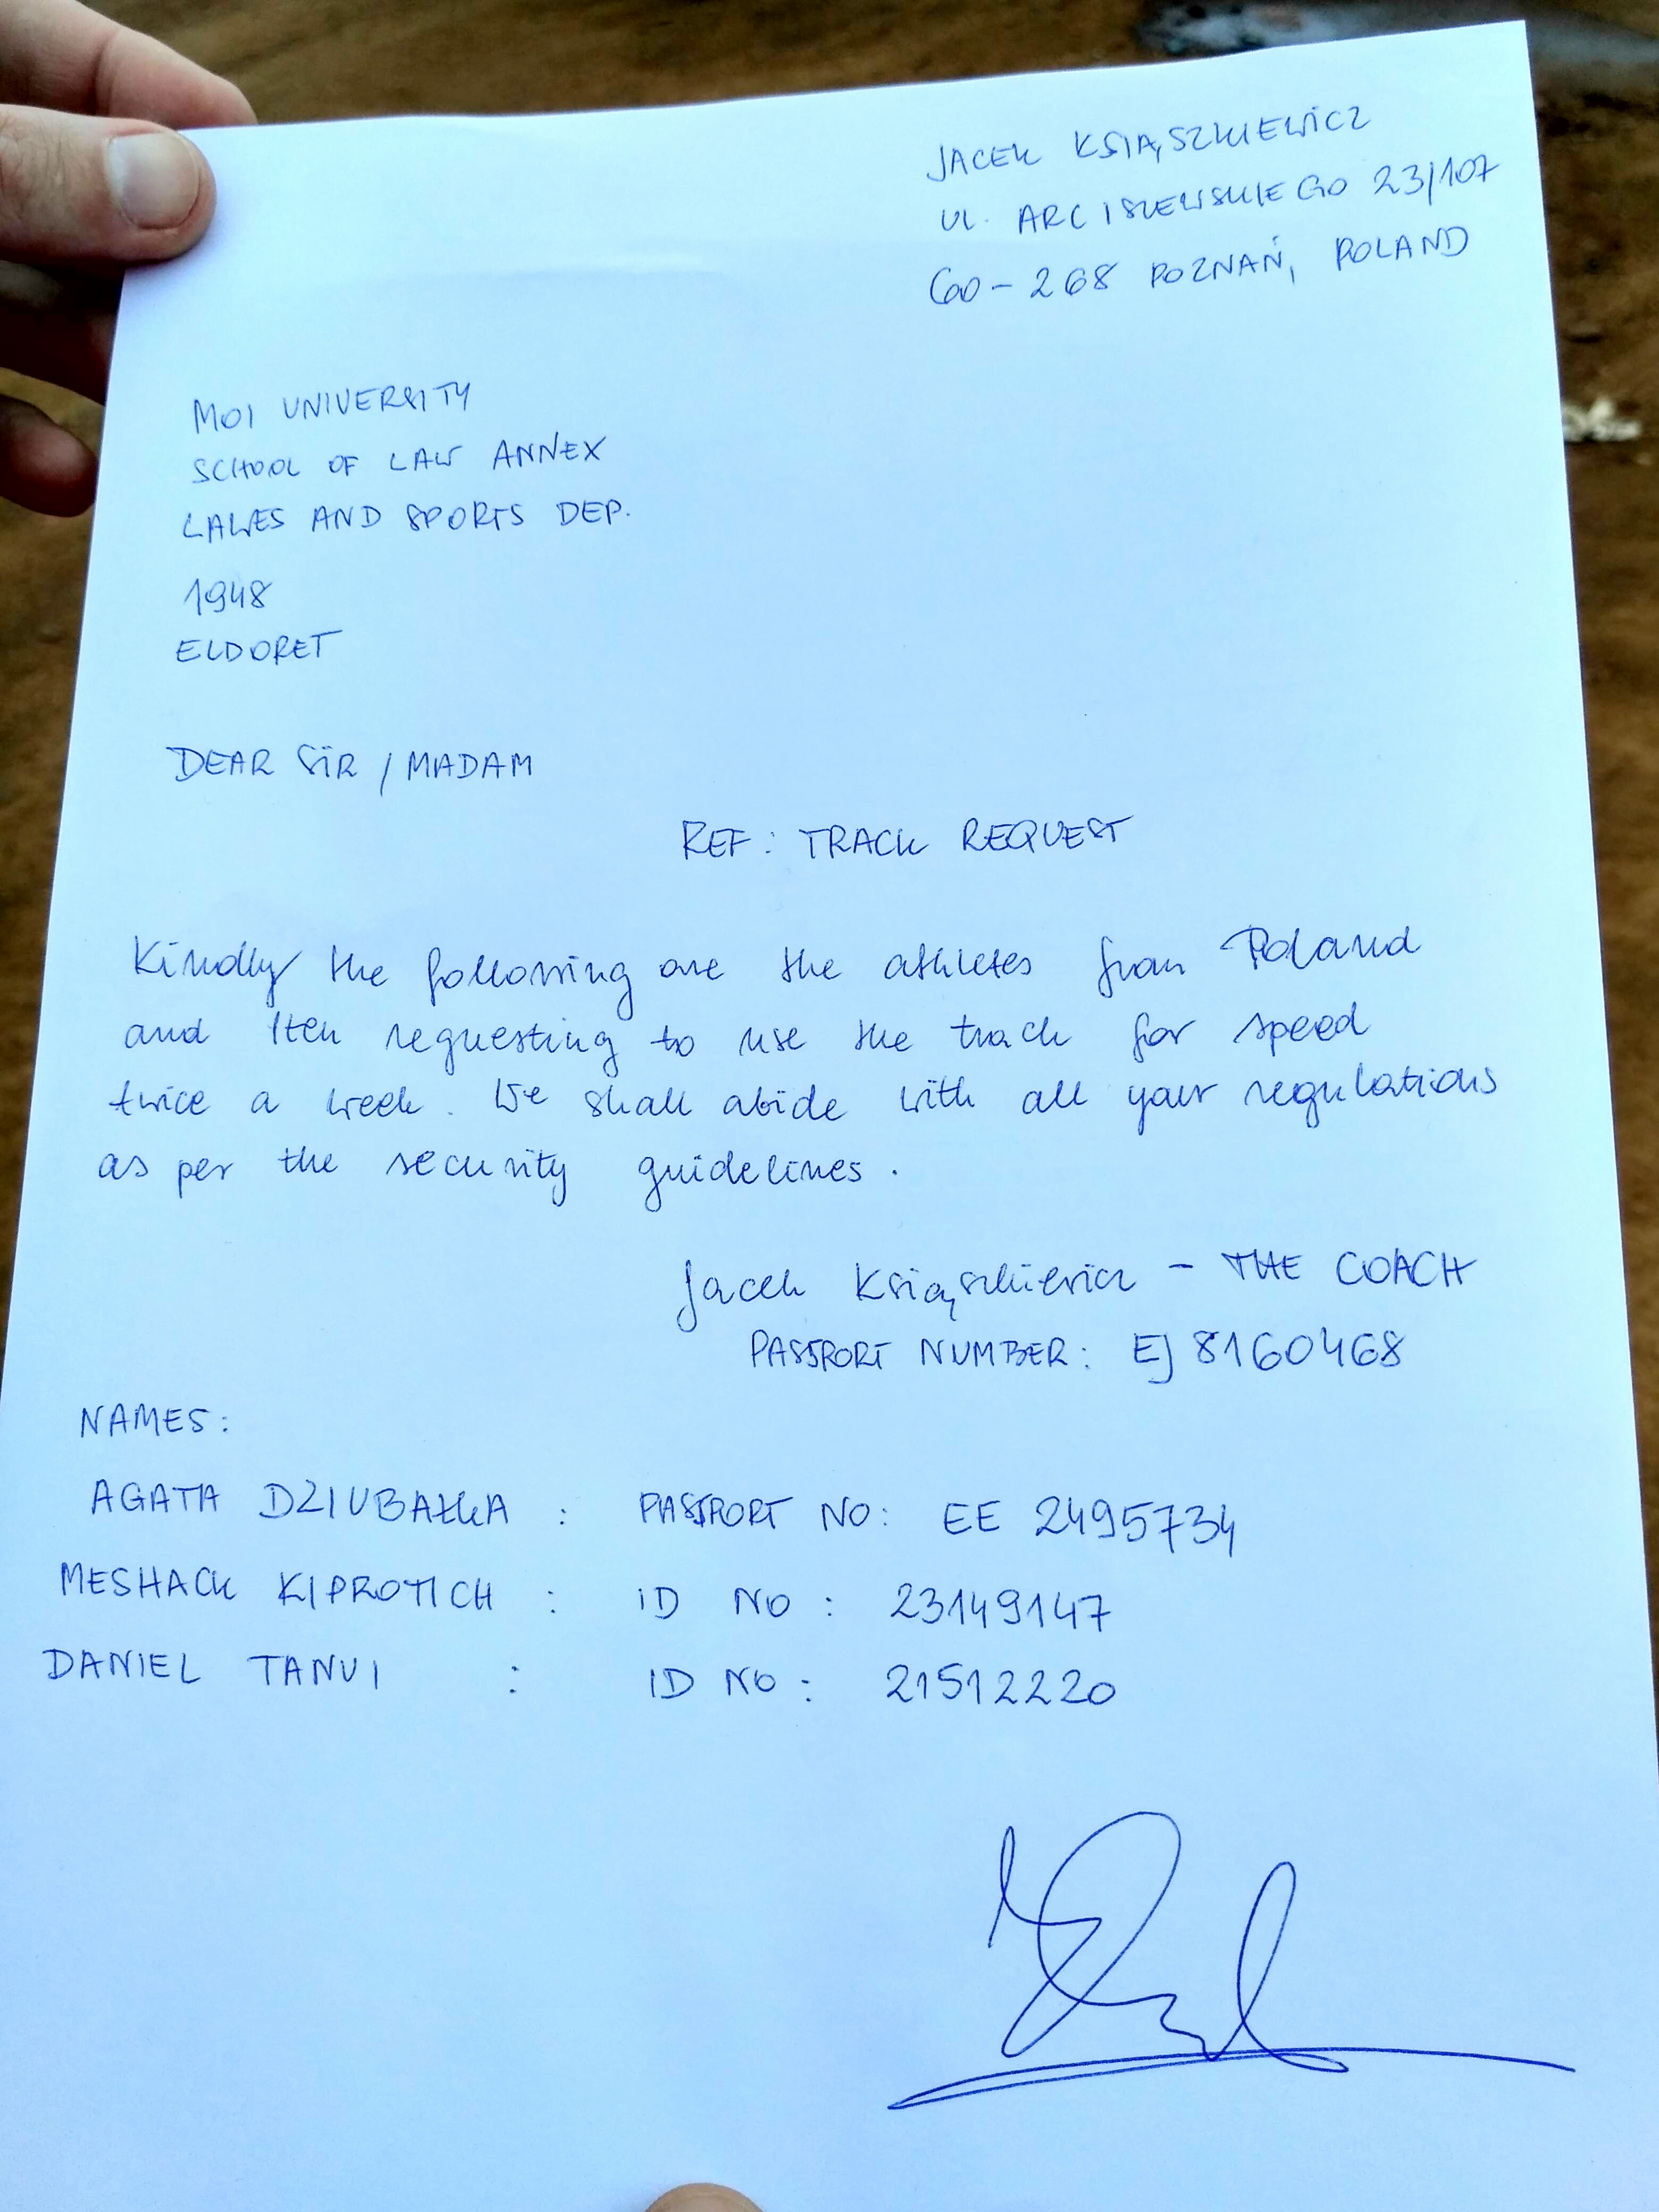 JACEK KSIĄSZKIEWICZ
UL. ARCISZEWSKIEGO 23/107
60-268 POZNAŃ, POLAND
MOI UNIVERSITY
SCHOOL OF LAW ANNEX
LAWES AND SPORTS DEP.
1948
ELDORET
DEAR SIR / MADAM
REF: TRACK REQUEST
Kindly the following are the athletes from Poland
and Iten requesting to use the track for speed
twice a week. We shall abide with all your regulations
as per the security guidelines.
Jacek Książkiewicz - THE COACH
PASSPORT NUMBER: EJ 8160468
NAMES:
AGATA DZIUBAŁKA : PASSPORT NO: EE 2495734
MESHACK KIPROTICH : ID NO : 23149147
DANIEL TANUI : ID NO : 21512220